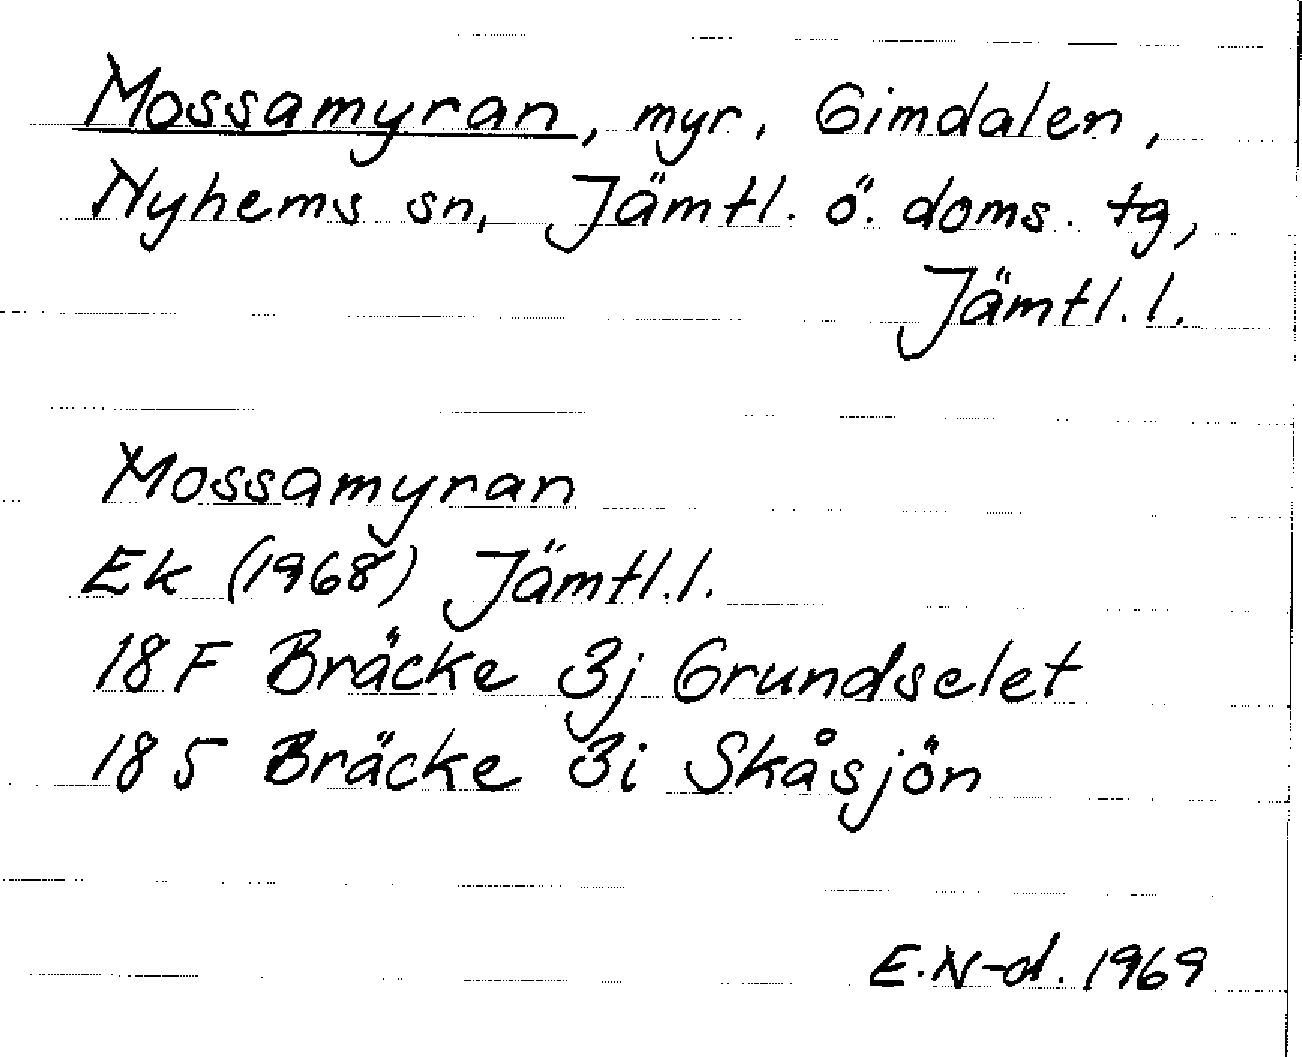 Mossamyran, myr, Gimdalen,
Nyhems sn, Jämtl. ö. doms. tg,
Jämtl. l.
Mossamyran
Ek (1968) Jämtl. l.
18 F Bräcke 3j Grundselet
18 5 Bräcke 3i Skåsjön
E.N-d. 1969